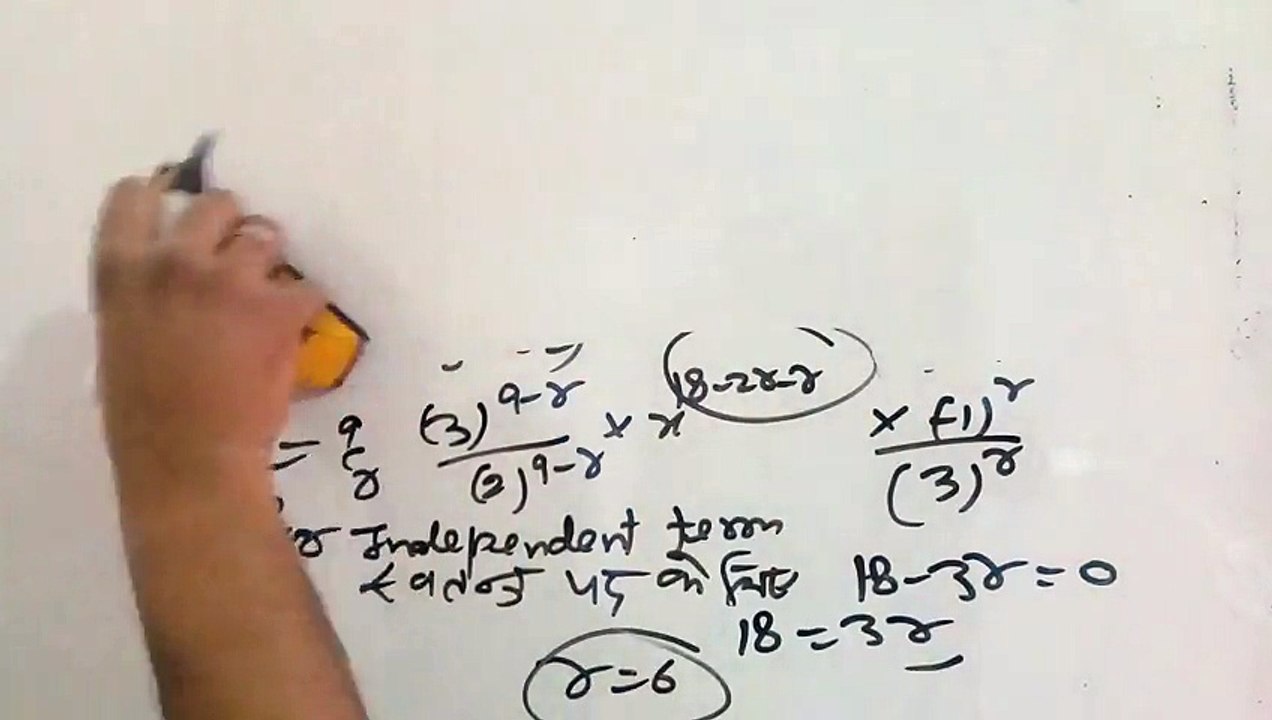 = ⁹Cᵣ (3)^(9-r) / (2)^(9-r) × x^(18-2r-r) × (-1)^r / (3)^r
Independent term
स्वतन्त्र पद के लिए 18-3r=0
18=3r
r=6